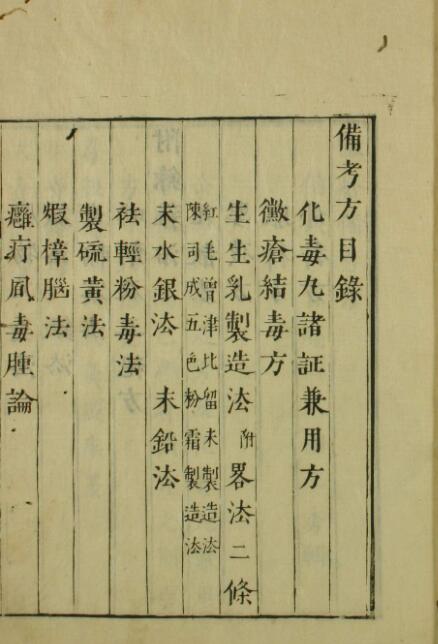 備考方目錄
化毒丸諸証兼用方
黴瘡結毒方
生生乳製造法 附畧法二條
紅毛曾津比留末製造法
陳司成五色粉霜製造法
末水銀法 末鉛法
袪輕粉毒法
製硫黃法
煆樟腦法
癰疔風毒腫論